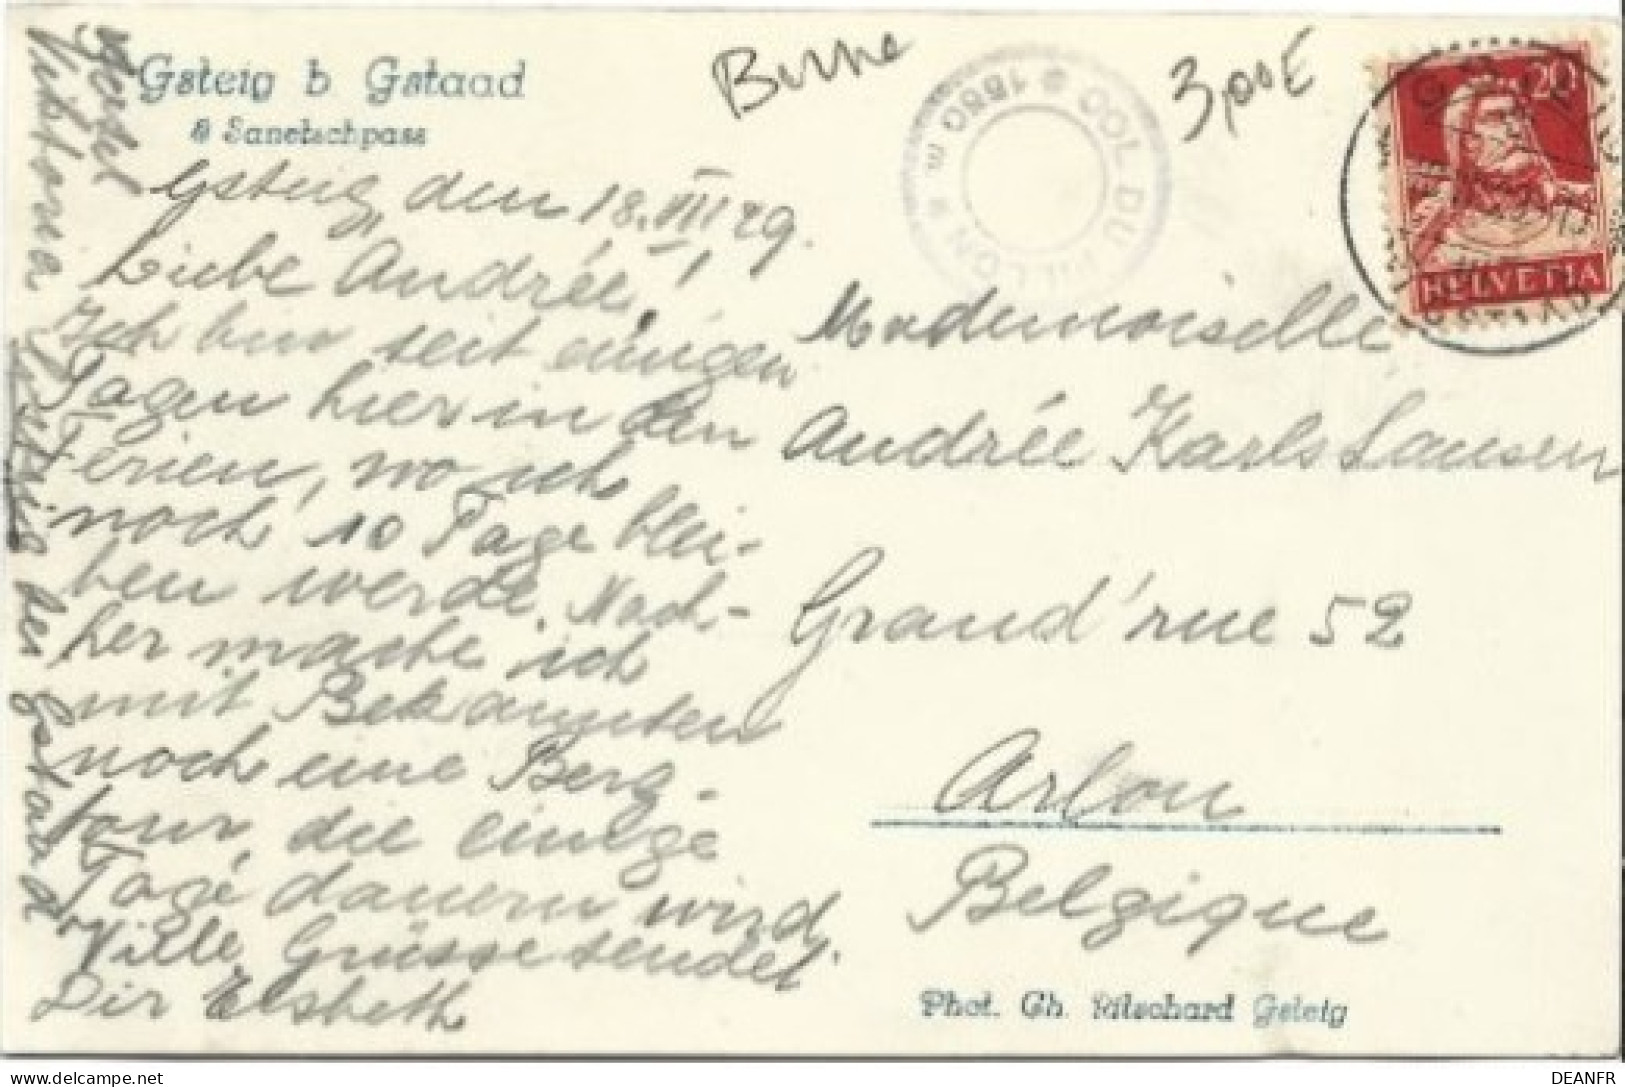 Gsteig b Gstaad
& Sanetschpass
Berne
3,00€
COL DU PILLON 1550 m
20
HELVETIA
Gsteig, den 18. VIII 29.
Liebe Andrée!
Ich bin seit einigen
Tagen hier in den
Ferien, wo ich
noch 10 Tage blei-
ben werde. Nach-
her mache ich
mit Bekannten
noch eine Berg-
tour, die einige
Tage dauern wird
Viele Grüsse sendet
Dir Elsbeth
Viktoria
Gsteig bei Gstaad
Mademoiselle
Andrée Karls Lausen
Grand'rue 52
Arlon
Belgique
Phot. Gh. Ritschard Gsteig
DEANFR